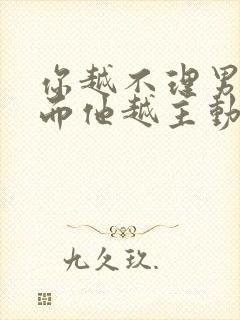 你越不理男
而他越主動
九久玖.